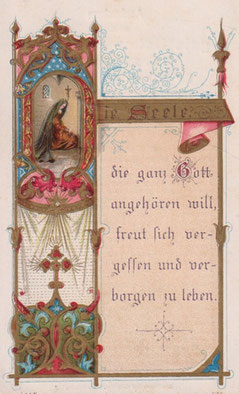 Die Seele,
die ganz Gott
angehören will,
freut sich ver-
gessen und ver-
borgen zu leben.